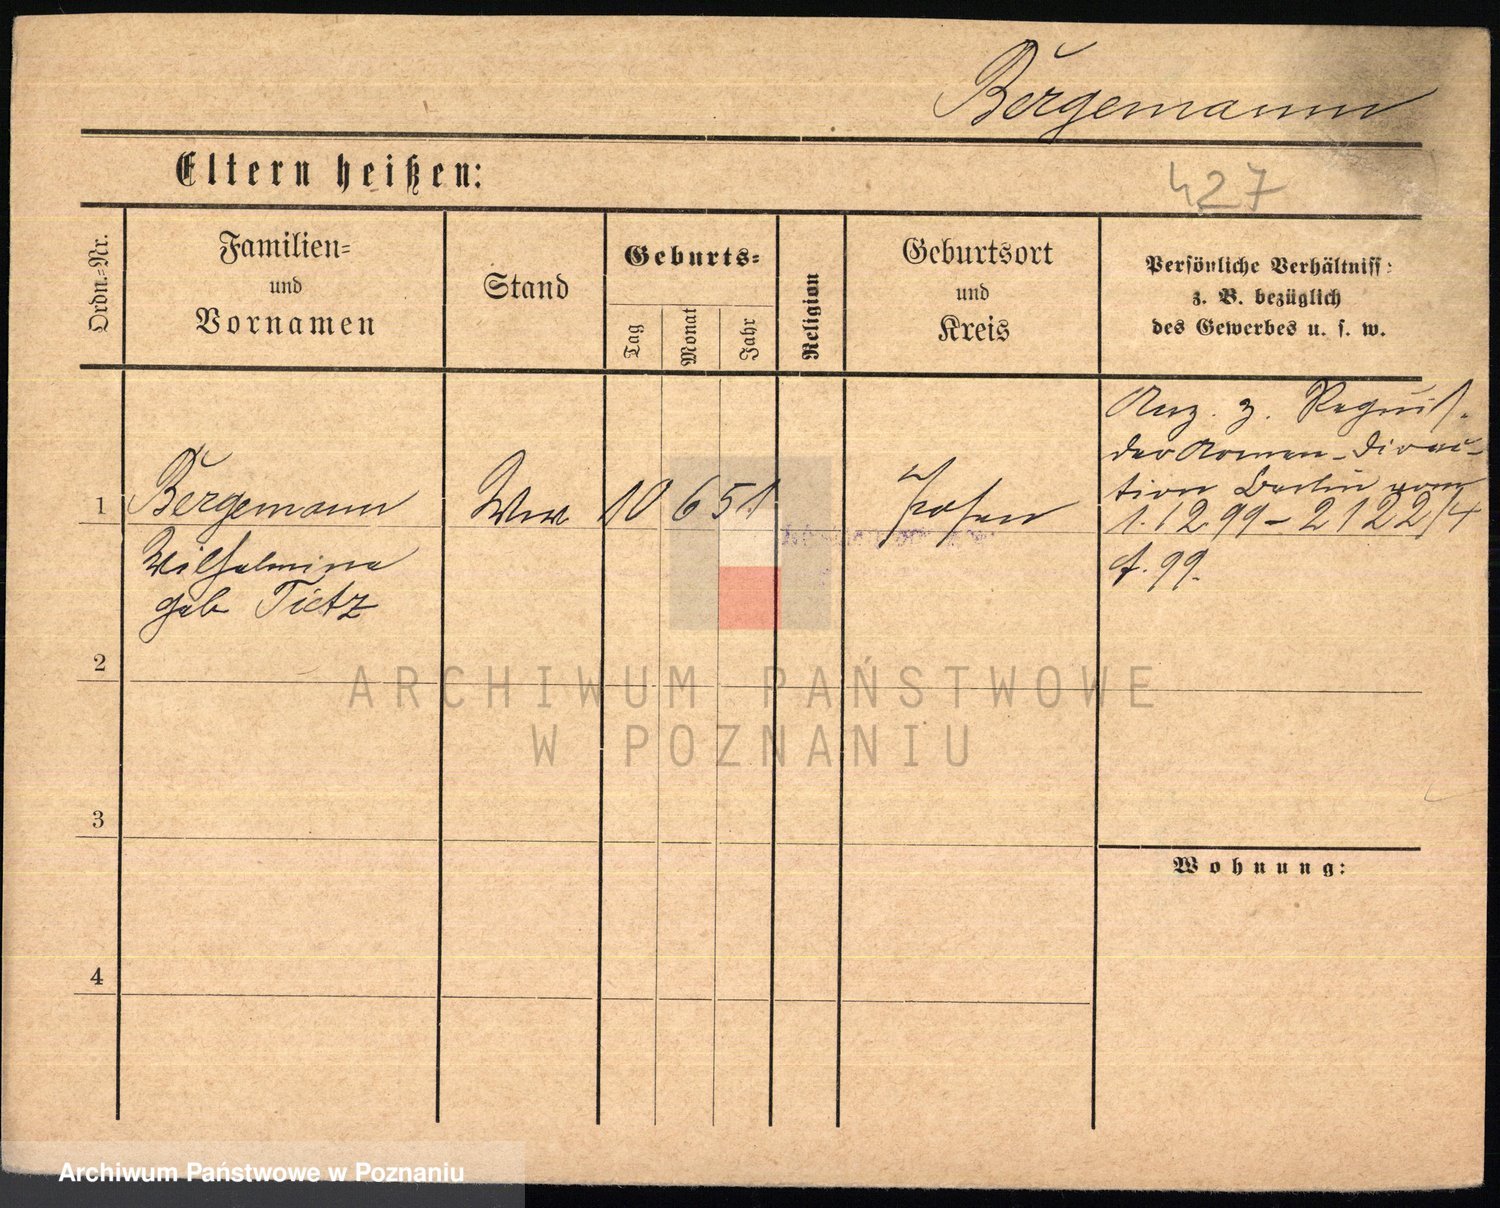 Bergemann
Eltern heißen:
427
Ordn.-Nr.
Familien-
und
Vornamen
Stand
Geburts-
Tag
Monat
Jahr
Religion
Geburtsort
und
Kreis
Persönliche Verhältniss
z. B. bezüglich
des Gewerbes u. s. w.
Anz. z. Requis.
der Armen-Direc-
tion Berlin vom
1 Bergemann Wwe 10 6 51 Posen
1.12.99 - 2122/4
A. 99.
Wilhelmine
geb Tietz
2
ARCHIWUM PAŃSTWOWE
W POZNANIU
3
Wohnung:
4
Archiwum Państwowe w Poznaniu